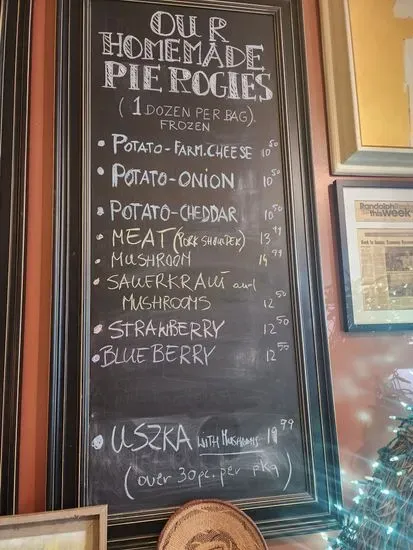 OUR
HOMEMADE
PIEROGIES
(1 DOZEN PER BAG)
FROZEN
• POTATO-FARM.CHEESE 10⁵⁰
• POTATO-ONION 10⁵⁰
• POTATO-CHEDDAR 10⁵⁰
• MEAT (PORK SHOULDER) 13⁹⁹
• MUSHROOM 14⁹⁹
• SAUERKRAUT and
MUSHROOMS 12⁵⁰
• STRAWBERRY 12⁵⁰
• BLUEBERRY 12⁵⁰
• USZKA WITH MUSHROOMS 19⁹⁹
(over 30pc. per pkg)
Randolph
this week